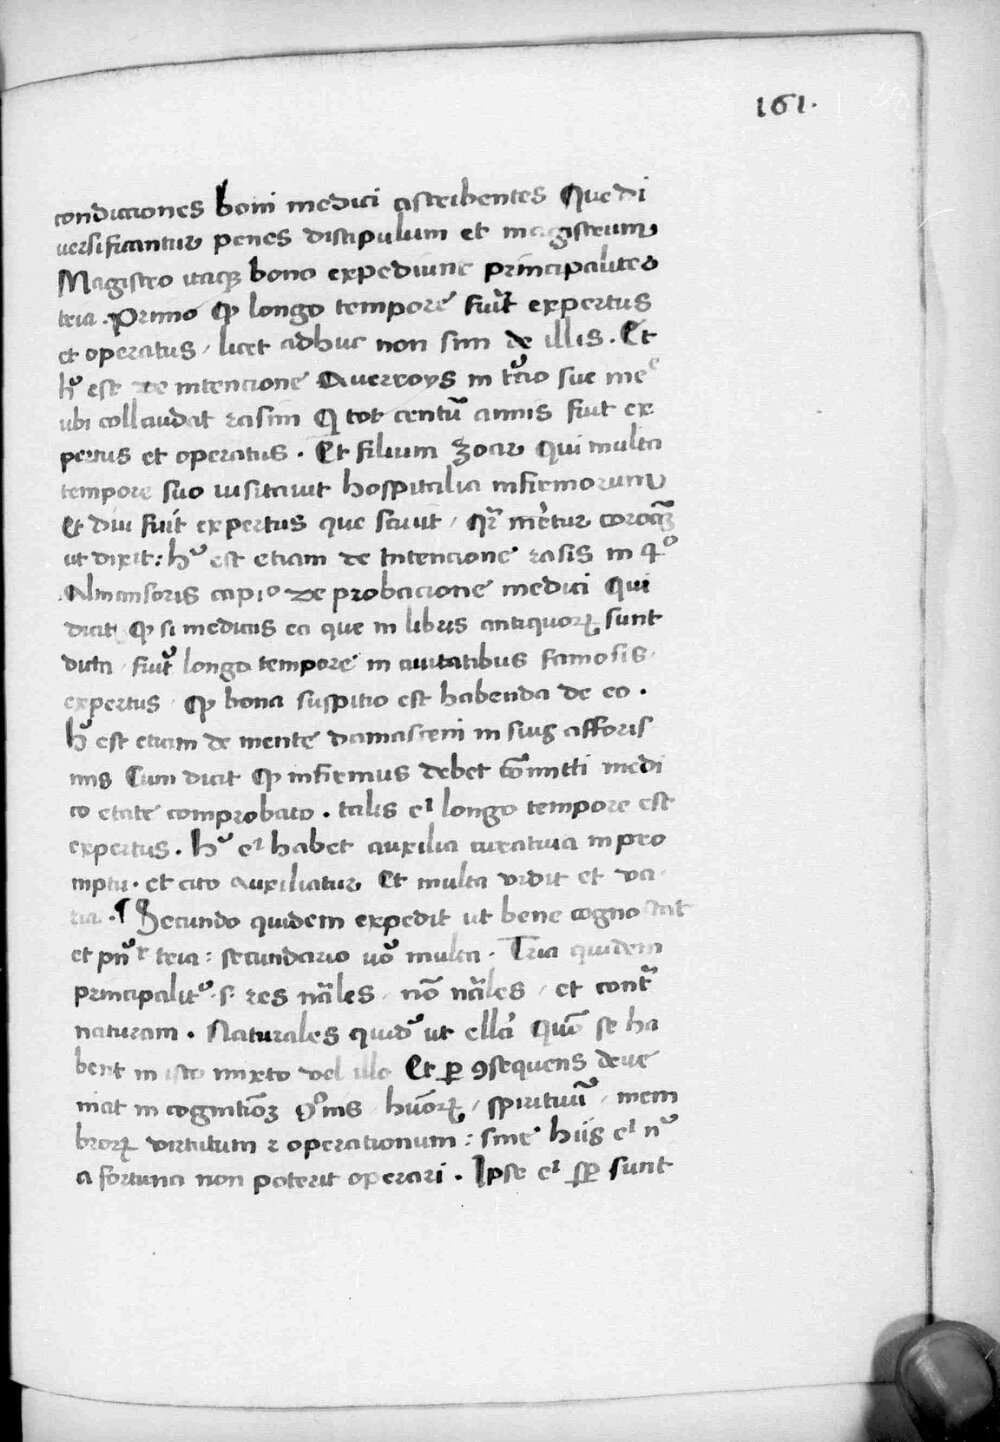 161.
condiciones boni medici ascribentes Que di
uersificantur penes discipulum et magistrum
Magistro itaqꝫ bono expediunt principaliter
tria . Primo ꝙ longo tempore fuit᷑ expertus
et operatus / licet adhuc non sim de illis . Et
hͦ est de intencione Auerroys in tͨio sue meͤ
ubi collaudat rasim ꝙ tot centū annis fuit ex
pertus et operatus . Et filium zoar qui multa
tempore suo uisitauit hospitalia infirmorum
Et diu fuit expertus que sciuit / qr̄
ut dixit : hͦ est etiam de Intencione rasis in 4ͦ
Almansoris capiͦ de probacione medici Qui
dicit ꝙ si medicus ea que in libris antiquoꝝ sunt
dicta . fuit᷑ longo tempore in ciuitatibus famosis .
expertus . ꝙ bona suspitio est habenda de eo .
hͦ est etiam de mente damasceni in suis afforis
mis Cum dicit ꝙ infirmus debet cōmitti medi
co etate comprobato . talis eͥ longo tempore est
expertus . hͦ eͥ habet auxilia curatiua in pro
mptu . et cito auxiliatur Et multa vidit et va
ria . ¶ Secundo quidem expedit ut bene cognoscat
et tria : secundario uͦo multa . Tria quidem
principalitͦ . s . res nāles . nō nāles / et contᷓ
naturam . Naturales quidͦ ut ella quō se ha
bent in isto mixto vel illo Et ꝑ ꝯsequens deue
niat in cognitiōꝫ huōꝝ / spirituū / mem
broꝝ virtutum ⁊ operationum : sine hiis eͥ nͦ
a fortuna non poterit operari . Ipse eͥ sꝑ sunt